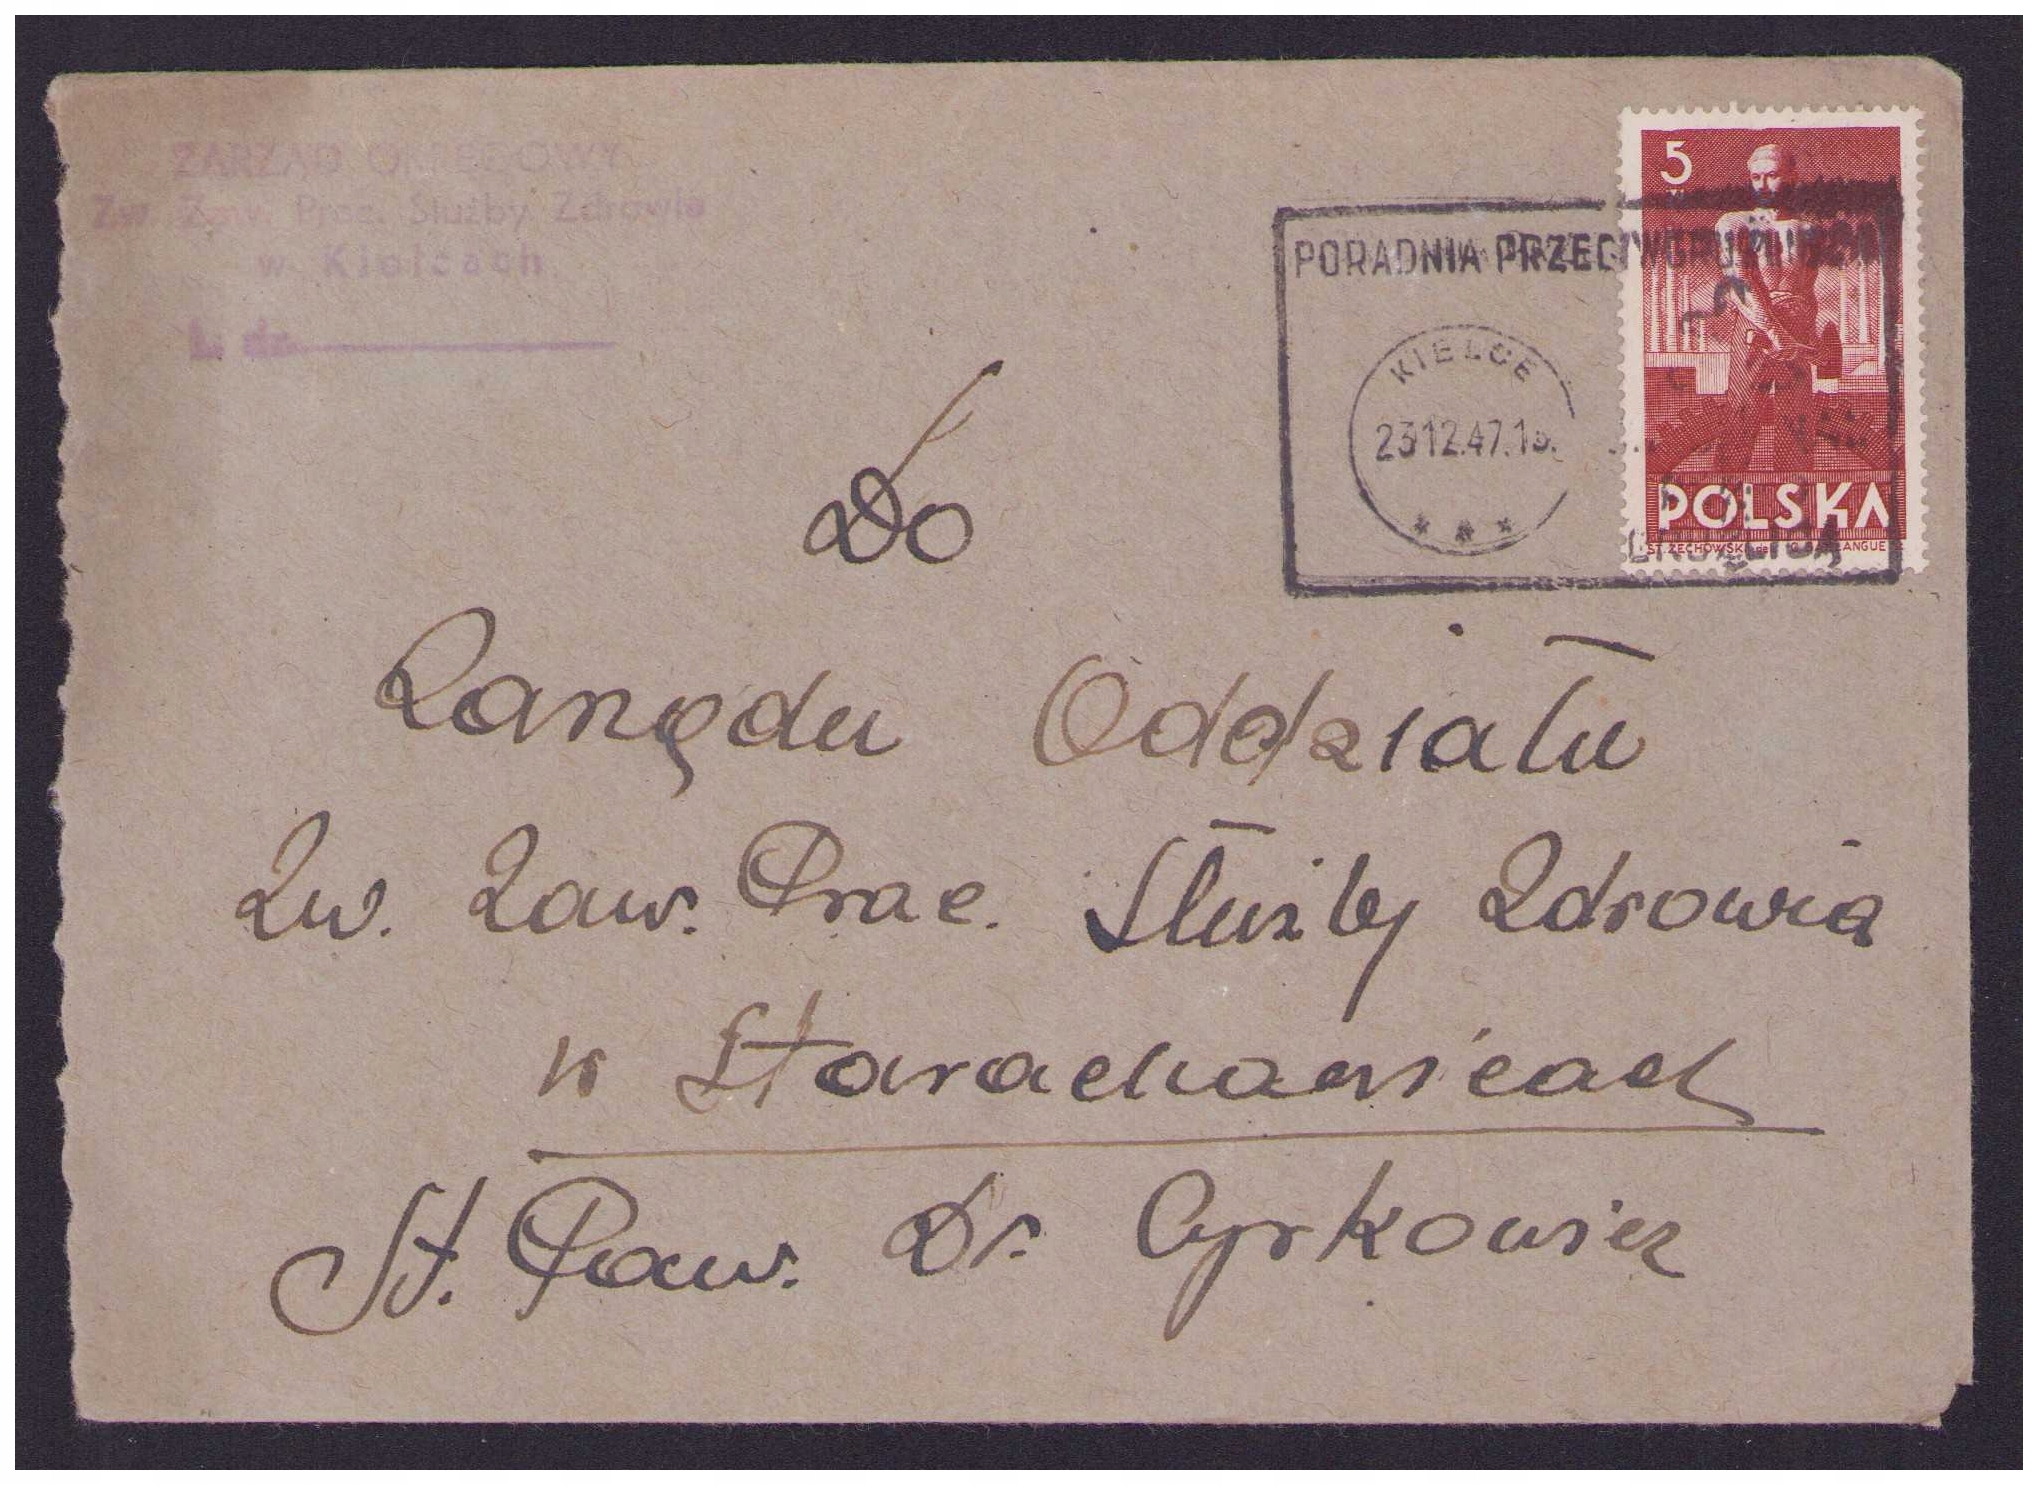 ZARZĄD OKRĘGOWY
Zw. Zaw. Prac. Służby Zdrowia
w Kielcach
L. dz.
5
PORADNIA PRZECIW
KIELCE
23.12.47.
POLSKA
ST. ŻECHOWSKI del.
Do
Zarządu Oddziału
Zw. Zaw. Prac. Służby Zdrowia
w Starachowicach
St. Pow. Dr. Cyrkowicz